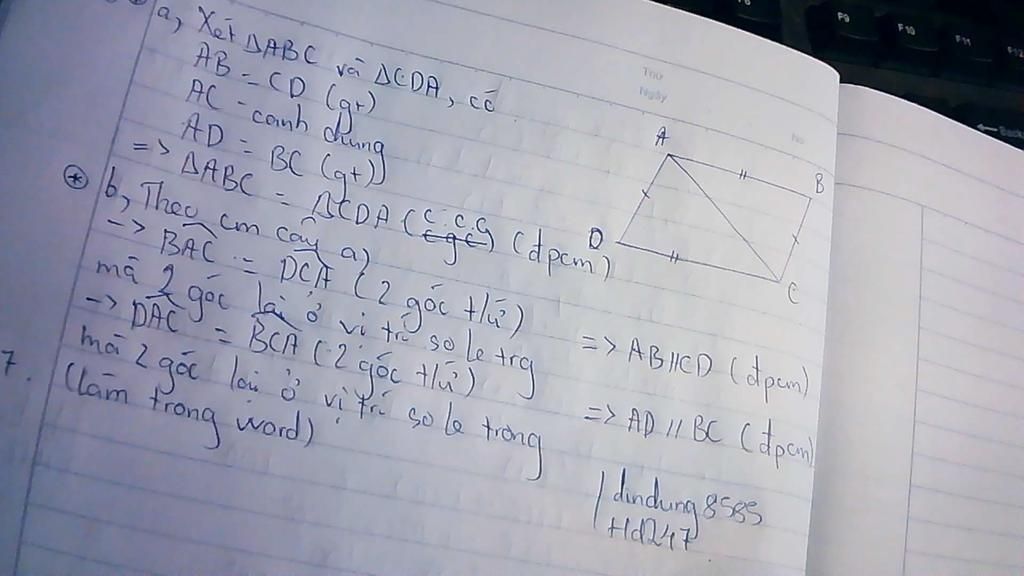 a, Xét ΔABC và ΔCDA, có
AB = CD (gt)
AC - canh chung
AD = BC (gt)
=> ΔABC = ΔCDA (c.c.c) (đpcm)
b, Theo cm câu a)
-> BAC = DCA (2 góc t/ứ)
mà 2 góc lại ở vị trí so le trg
=> AB//CD (đpcm)
-> DAC = BCA (2 góc t/ứ)
mà 2 góc lại ở vị trí so le trong
=> AD // BC (đpcm)
7. (làm trong word)
dindung8585
+ld247
A
B
D
C
Thứ
Ngày
No
F9
F10
F11
F12
Back